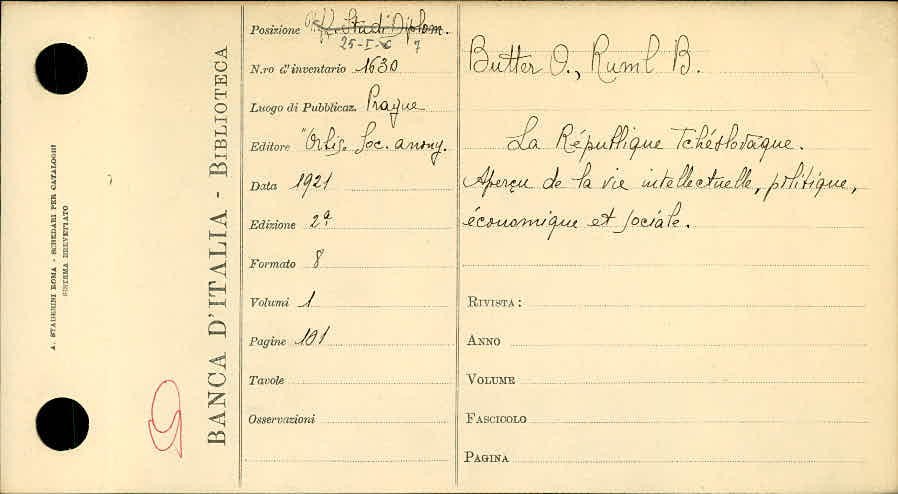 A. STADERINI ROMA - SCHEDARI PER CATALOGHI
SISTEMA BREVETTATO
BANCA D'ITALIA - BIBLIOTECA
Posizione Uff. Studi Diplom.
25-I-6 7
N.ro d'inventario 1630
Luogo di Pubblicaz. Prague
Editore "Orbis" Soc. anony.
Data 1921
Edizione 2ª
Formato 8
Volumi 1
Pagine 101
Tavole
Osservazioni
Butter O., Ruml B.
La République Tchéslovaque.
Aperçu de la vie intellectuelle, politique,
économique et sociale.
RIVISTA:
ANNO
VOLUME
FASCICOLO
PAGINA